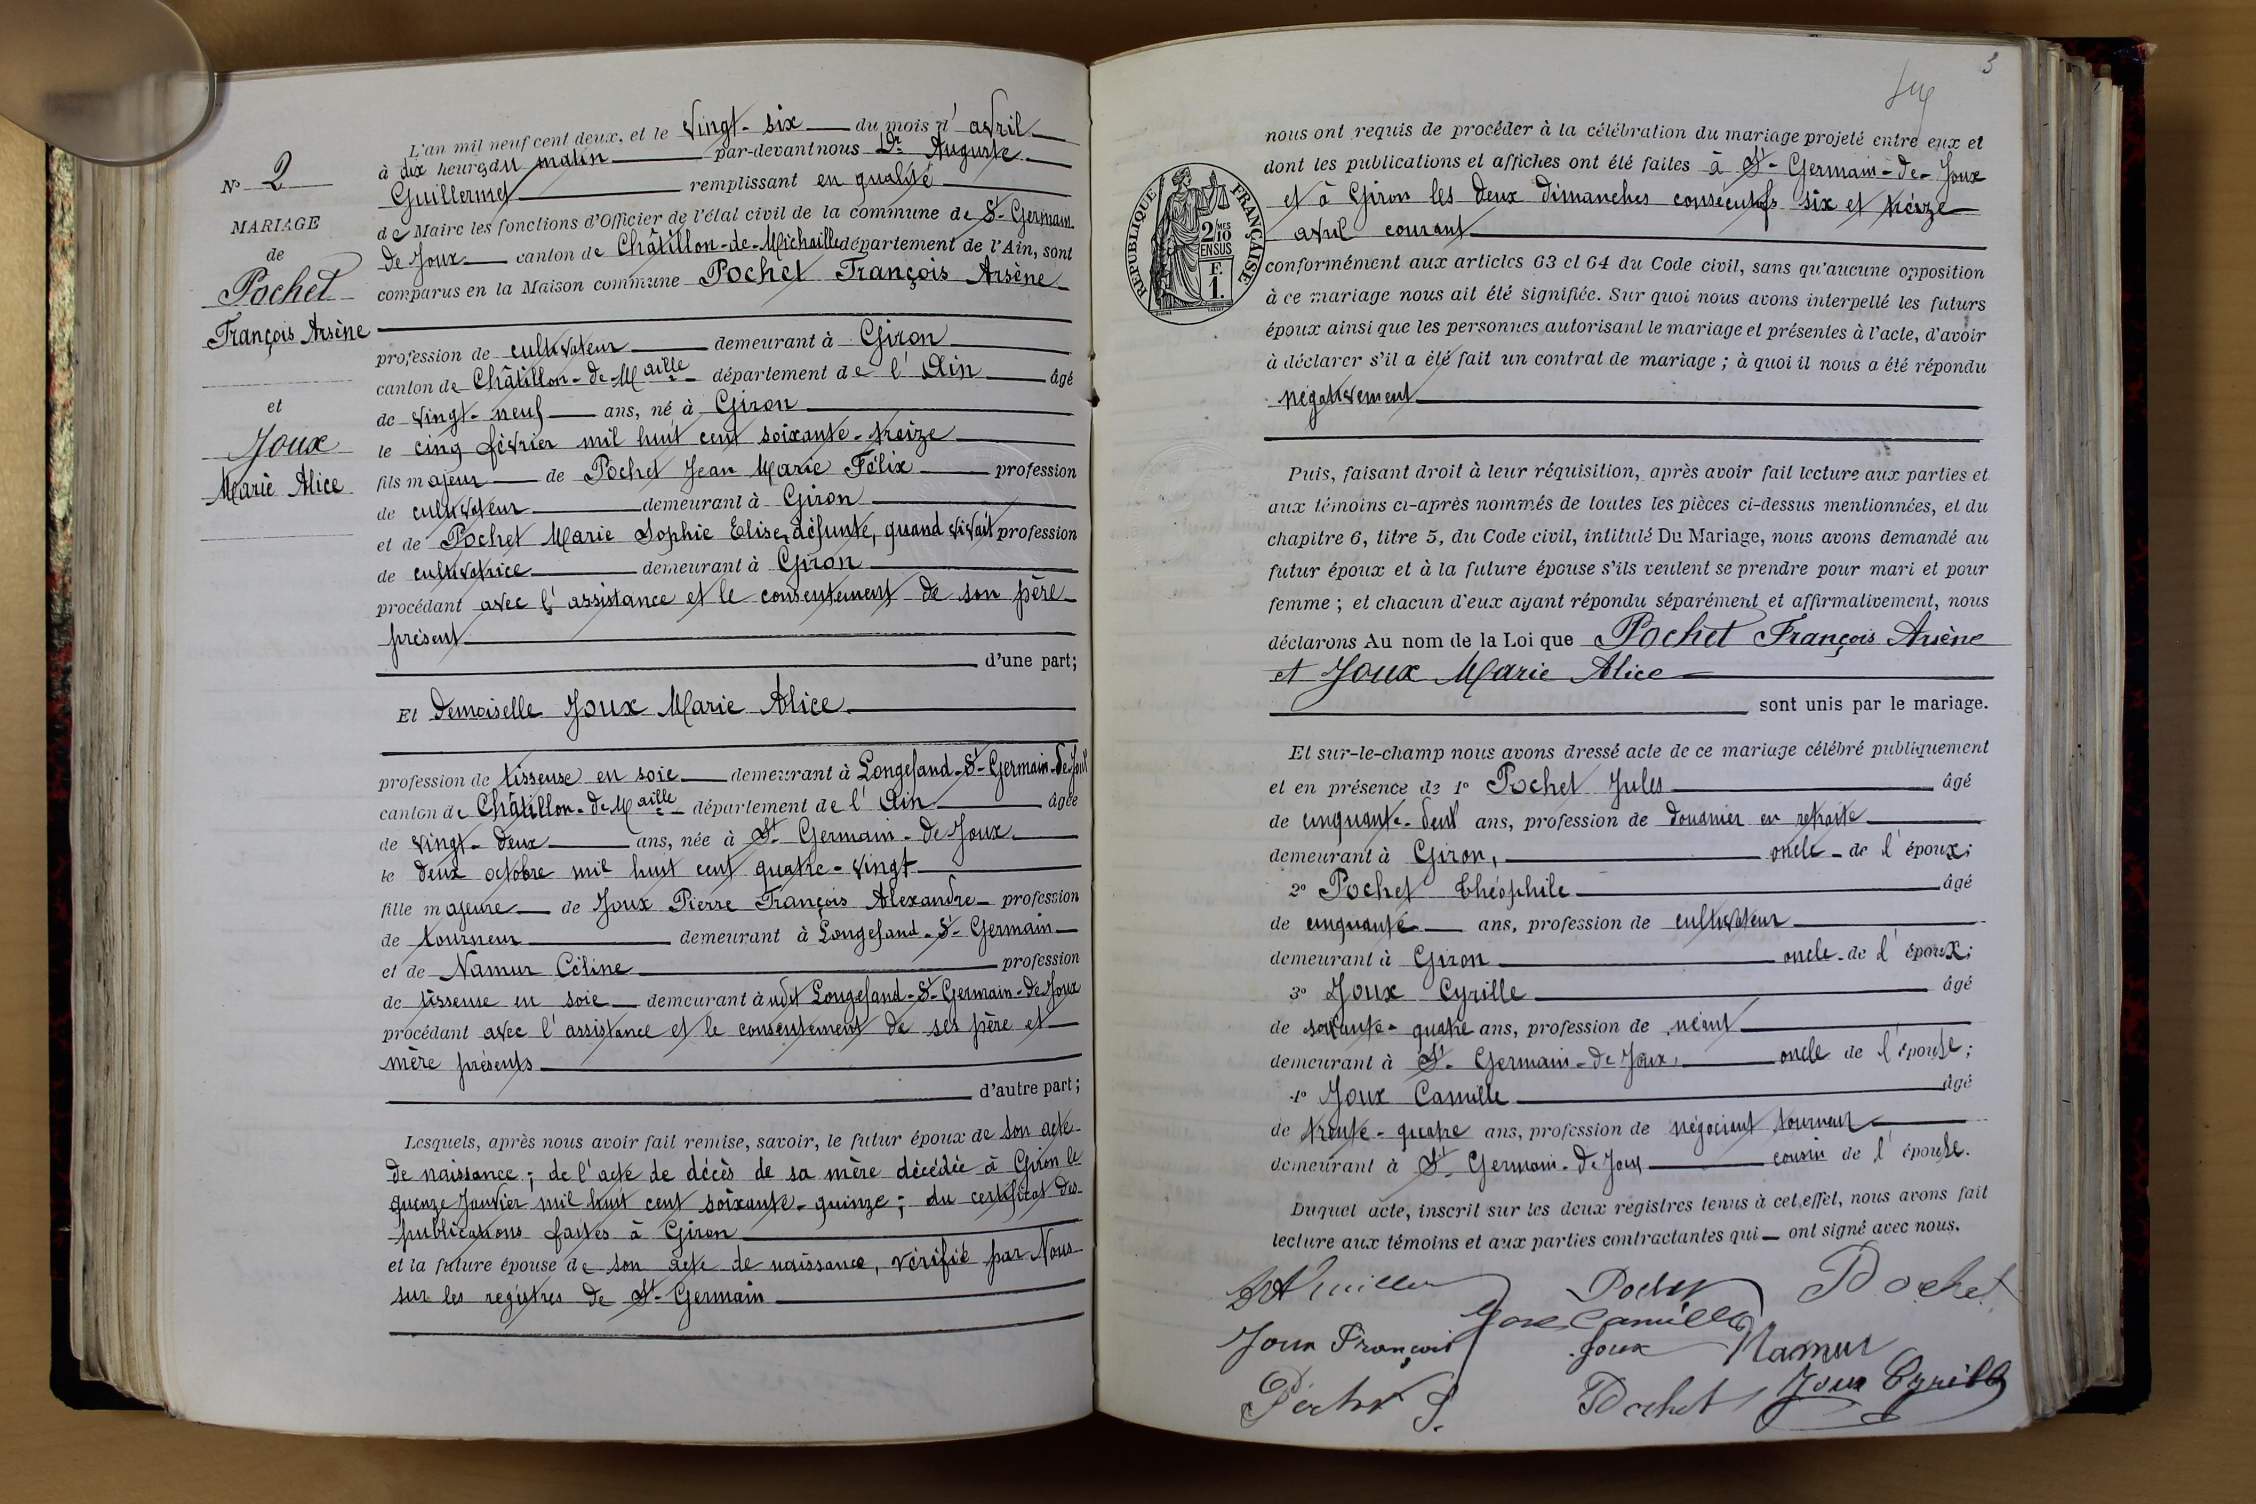 N° 2
MARIAGE
de
Pochet
François Arsène
et
Joux
Marie Alice
L'an mil neuf cent deux, et le vingt-six du mois d'avril
à dix heures du matin par-devant nous Dr Auguste
Guillermet remplissant en qualité
de Maire les fonctions d'Officier de l'état civil de la commune de St-Germain
de Joux canton de Châtillon-de-Michaille département de l'Ain, sont
comparus en la Maison commune Pochet François Arsène
profession de cultivateur demeurant à Giron
canton de Châtillon-de-Maille département de l'Ain âgé
de vingt-neuf ans, né à Giron
le cinq février mil huit cent soixante-treize
fils majeur de Pochet Jean Marie Félix profession
de cultivateur demeurant à Giron
et de Pochet Marie Sophie Elise, défunte, quand vivait profession
de cultivatrice demeurant à Giron
procédant avec l'assistance et le consentement de son père
présent
d'une part;
Et Demoiselle Joux Marie Alice
profession de tisseuse en soie demeurant à Longefand-St-Germain-de-Joux
canton de Châtillon-de-Maille département de l'Ain âgée
de vingt-deux ans, née à St-Germain-de-Joux
le deux octobre mil huit cent quatre-vingt
fille majeure de Joux Pierre François Alexandre profession
de tourneur demeurant à Longefand-St-Germain
et de Namur Céline profession
de tisseuse en soie demeurant à udit Longefand-St-Germain-de-Joux
procédant avec l'assistance et le consentement de ses père et
mère présents
d'autre part;
Lesquels, après nous avoir fait remise, savoir, le futur époux de son acte
de naissance; de l'acte de décès de sa mère décédée à Giron le
quinze Janvier mil huit cent soixante-quinze; du certificat des
publications faites à Giron
et la future épouse de son acte de naissance, vérifié par Nous
sur les registres de St-Germain
3
nous ont requis de procéder à la célébration du mariage projeté entre eux et
dont les publications et affiches ont été faites à St-Germain-de-Joux
et à Giron les deux dimanches consécutifs six et treize
avril courant
RÉPUBLIQUE FRANÇAISE
2 MES
10
EN SUS
F.
1.
conformément aux articles 63 et 64 du Code civil, sans qu'aucune opposition
à ce mariage nous ait été signifiée. Sur quoi nous avons interpellé les futurs
époux ainsi que les personnes autorisant le mariage et présentes à l'acte, d'avoir
à déclarer s'il a été fait un contrat de mariage; à quoi il nous a été répondu
négativement
Puis, faisant droit à leur réquisition, après avoir fait lecture aux parties et
aux témoins ci-après nommés de toutes les pièces ci-dessus mentionnées, et du
chapitre 6, titre 5, du Code civil, intitulé Du Mariage, nous avons demandé au
futur époux et à la future épouse s'ils veulent se prendre pour mari et pour
femme; et chacun d'eux ayant répondu séparément et affirmativement, nous
déclarons Au nom de la Loi que Pochet François Arsène
et Joux Marie Alice
sont unis par le mariage.
Et sur-le-champ nous avons dressé acte de ce mariage célébré publiquement
et en présence de 1° Pochet Jules âgé
de cinquante-deux ans, profession de douanier en retraite
demeurant à Giron, oncle de l'époux;
2° Pochet Théophile âgé
de cinquante ans, profession de cultivateur
demeurant à Giron oncle de l'époux;
3° Joux Cyrille âgé
de soixante-quatre ans, profession de néant
demeurant à St-Germain-de-Joux, oncle de l'épouse;
4° Joux Camille âgé
de trente-quatre ans, profession de négociant tourneur
demeurant à St-Germain-de-Joux cousin de l'épouse.
Duquel acte, inscrit sur les deux registres tenus à cet effet, nous avons fait
lecture aux témoins et aux parties contractantes qui ont signé avec nous.
Pochet Pochet
Joux Camille
Joux François Joux Namur
Pochet J. Pochet Joux Cyrille